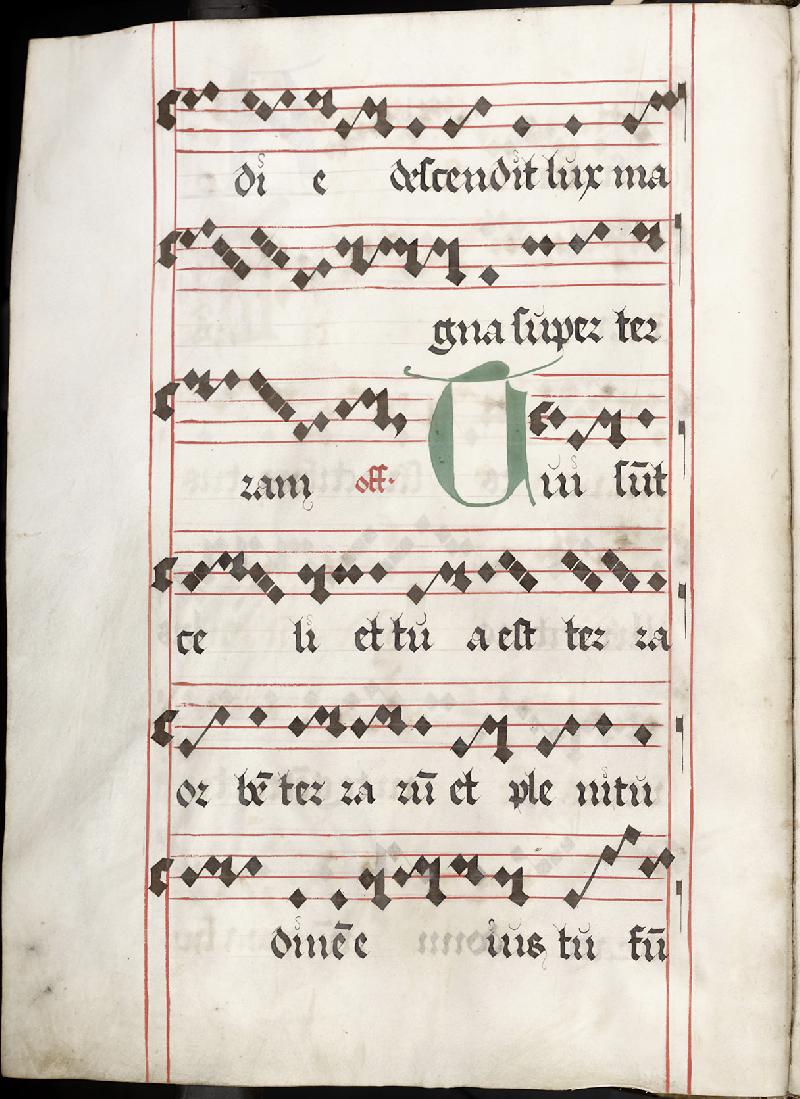 di e descendit lux ma
gna super ter
ram off. Tui sūt
ce li et tu a est ter ra
or bē ter ra rū et ple nitu
dinē e ius tu fū